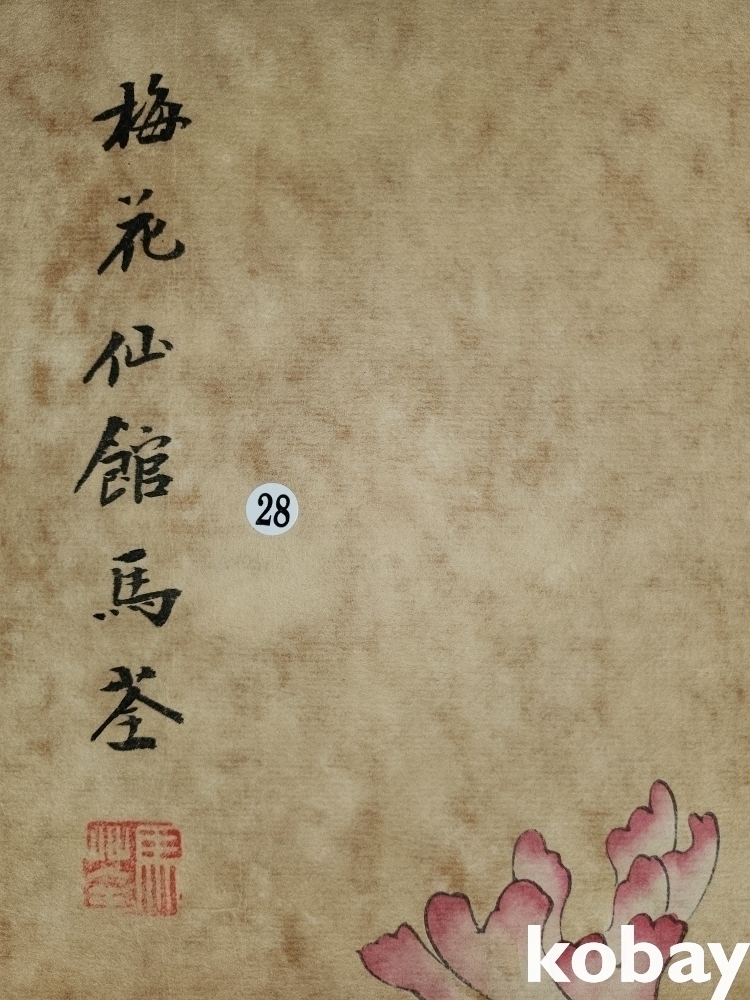 梅花仙館馬荃
28
馬荃
kobay